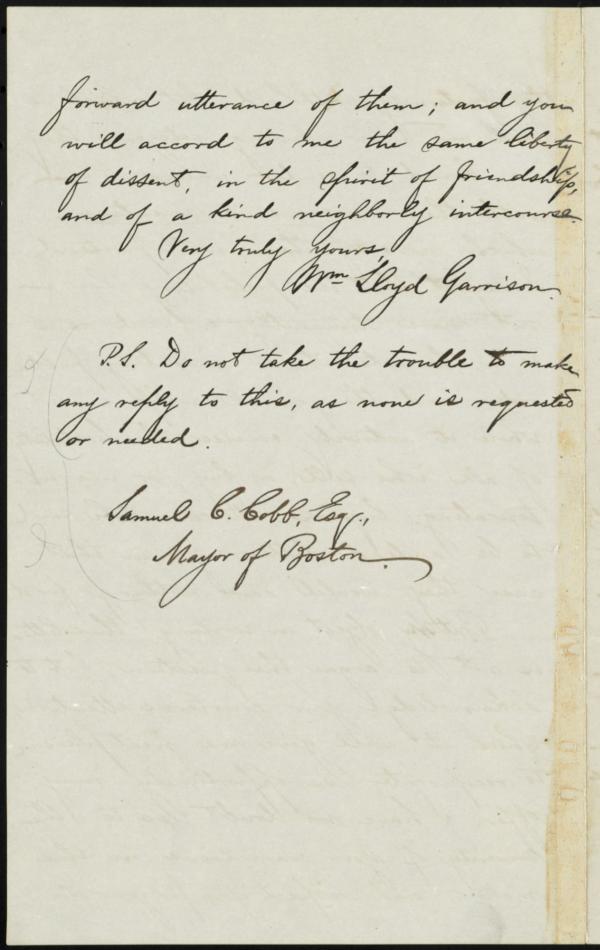 forward utterance of them; and you
will accord to me the same liberty
of dissent, in the spirit of friendship,
and of a kind neighborly intercourse.
Very truly yours,
Wm. Lloyd Garrison.
P.S. Do not take the trouble to make
any reply to this, as none is requested
or needed.
Samuel C. Cobb, Esq.,
Mayor of Boston.